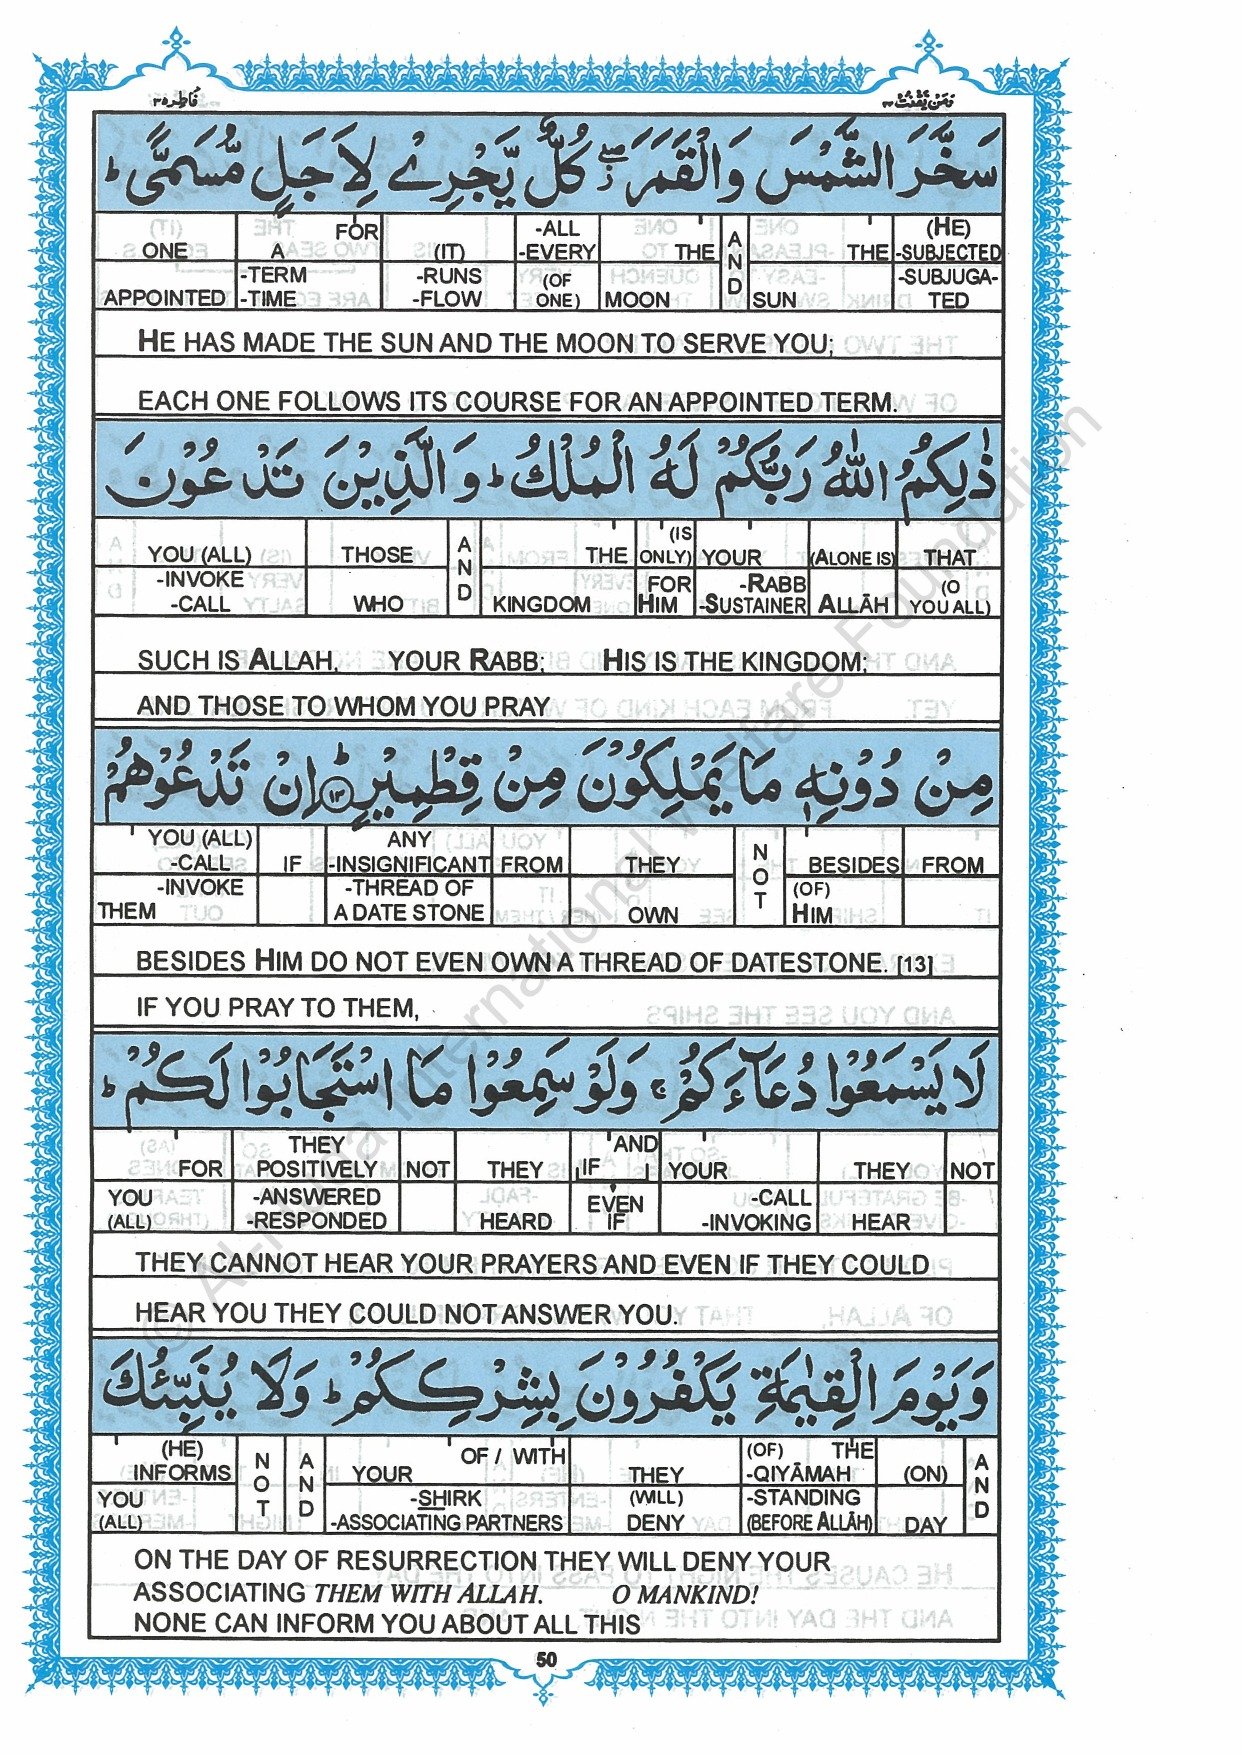 فاطر ٣٥ ومن يقنت ٢٢
سَخَّرَ الشَّمْسَ وَالْقَمَرَ ۖ كُلٌّ يَّجْرِيْ لِاَجَلٍ مُّسَمًّى ؕ
ONE APPOINTED | FOR A -TERM -TIME | (IT) -RUNS -FLOW | -ALL -EVERY (OF ONE) | THE MOON | AND | THE SUN | (HE) -SUBJECTED -SUBJUGA-TED
HE HAS MADE THE SUN AND THE MOON TO SERVE YOU;
EACH ONE FOLLOWS ITS COURSE FOR AN APPOINTED TERM.
ذٰلِكُمُ اللّٰهُ رَبُّكُمْ لَهُ الْمُلْكُ ؕ وَالَّذِيْنَ تَدْعُوْنَ
YOU (ALL) -INVOKE -CALL | THOSE WHO | AND | THE KINGDOM | (IS ONLY) FOR HIM | YOUR -RABB -SUSTAINER | (ALONE IS) ALLĀH | THAT (O YOU ALL)
SUCH IS ALLAH, YOUR RABB; HIS IS THE KINGDOM;
AND THOSE TO WHOM YOU PRAY
مِنْ دُوْنِهٖ مَا يَمْلِكُوْنَ مِنْ قِطْمِيْرٍ ؕ ١٣ اِنْ تَدْعُوْهُمْ
YOU (ALL) -CALL -INVOKE THEM | IF | ANY -INSIGNIFICANT -THREAD OF A DATE STONE | FROM | THEY OWN | NOT | BESIDES (OF) HIM | FROM
BESIDES HIM DO NOT EVEN OWN A THREAD OF DATESTONE. [13]
IF YOU PRAY TO THEM,
لَا يَسْمَعُوْا دُعَآءَكُمْ ۚ وَلَوْ سَمِعُوْا مَا اسْتَجَابُوْا لَكُمْ ؕ
FOR YOU (ALL) | THEY POSITIVELY -ANSWERED -RESPONDED | NOT | THEY HEARD | AND IF EVEN IF | YOUR -CALL -INVOKING | THEY HEAR | NOT
THEY CANNOT HEAR YOUR PRAYERS AND EVEN IF THEY COULD
HEAR YOU THEY COULD NOT ANSWER YOU.
وَيَوْمَ الْقِيٰمَةِ يَكْفُرُوْنَ بِشِرْكِكُمْ ؕ وَلَا يُنَبِّئُكَ
(HE) INFORMS YOU (ALL) | NOT | AND | OF / WITH YOUR -SHIRK -ASSOCIATING PARTNERS | THEY (WILL) DENY | (OF) THE -QIYĀMAH -STANDING (BEFORE ALLĀH) | (ON) DAY | AND
ON THE DAY OF RESURRECTION THEY WILL DENY YOUR
ASSOCIATING THEM WITH ALLAH. O MANKIND!
NONE CAN INFORM YOU ABOUT ALL THIS
50